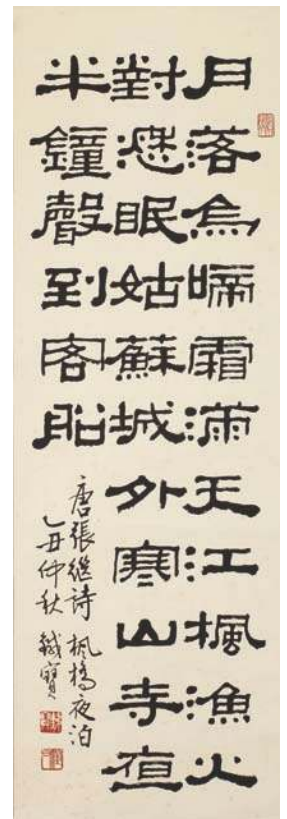 月落烏啼霜滿天江楓漁火
對愁眠姑蘇城外寒山寺夜
半鐘聲到客船
唐張繼詩 楓橋夜泊
乙丑仲秋 鐵寶